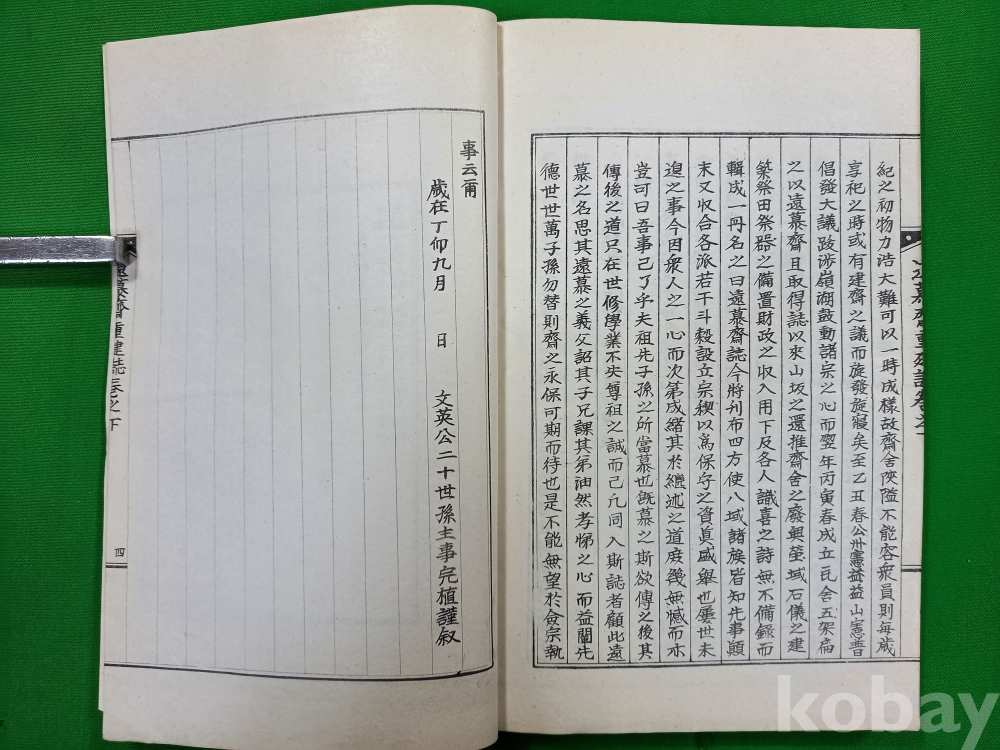 紀之初物力浩大難可以一時成樣故齋舍陜隘不能容衆員則每歲
享祀之時或有建齋之議而旋發旋寢矣至乙丑春公州憲益益山憲普
倡發大議跋涉嶺湖鼓動諸宗之心而翌年丙寅春成立瓦舍五架扁
之以遠慕齋且取得誌以來山坂之還推齋舍之廢興塋域石儀之建
築祭田祭器之備置財政之収入用下及各人識喜之詩無不備錄而
輯成一冊名之曰遠慕齋誌今將刋布四方使八域諸族皆知先事顚
末又収合各派若干斗穀設立宗稧以爲保守之資眞盛舉也屢世未
遑之事今因衆人之一心而次第成緖其於繼述之道庶幾無憾而亦
豈可曰吾事已了乎夫祖先子孫之所當慕也旣慕之斯欲傳之後其
傳後之道只在世修學業不失尊祖之誠而已凢同入斯誌者顧此遠
慕之名思其遠慕之義父詔其子兄課其弟油然孝悌之心而益闡先
德世世萬子孫勿替則齋之永保可期而待也是不能無望於僉宗執
事云爾
歲在丁卯九月 日 文英公二十世孫主事完植謹叙
遠慕齋重建誌卷之下
四
kobay